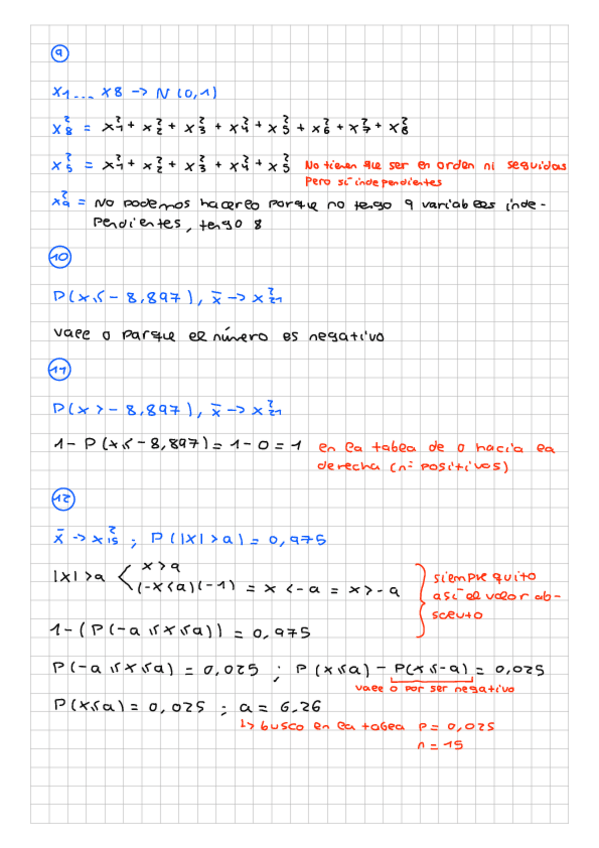 9
x1... x8 -> N(0,1)
x²8 = x²1 + x²2 + x²3 + x²4 + x²5 + x²6 + x²7 + x²8
x²5 = x²1 + x²2 + x²3 + x²4 + x²5 No tienen que ser en orden ni seguidas
pero sí independientes
x²9 = No podemos hacerlo porque no tengo 9 variables inde-
pendientes, tengo 8
10
P(x ≤ - 8,897), x̄ -> x²21
vale 0 porque el número es negativo
11
P(x > - 8,897), x̄ -> x²21
1 - P(x ≤ - 8,897) = 1 - 0 = 1 en la tabla de 0 hacia la
derecha (nº positivos)
12
x̄ -> x²15 ; P(|x| > a) = 0,975
|x| > a < x > a
(-x < a)(-1) = x < -a = x > -a
siempre quito
así el valor ab-
soluto
1 - (P(-a ≤ x ≤ a)) = 0,975
P(-a ≤ x ≤ a) = 0,025 ; P(x ≤ a) - P(x ≤ -a) = 0,025
vale 0 por ser negativo
P(x ≤ a) = 0,025 ; a = 6,26
↳ busco en la tabla P = 0,025
n = 15